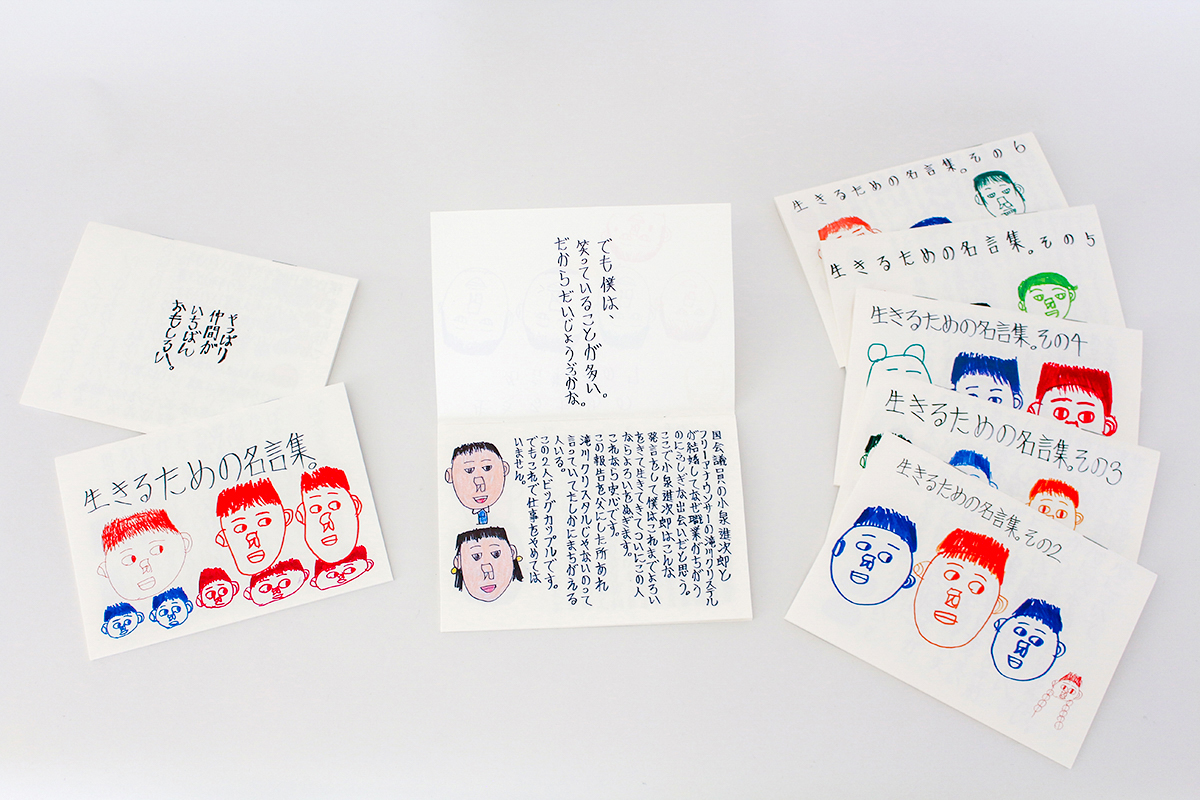 やっぱり
仲間が
いちばん
おもしろい。
生きるための名言集。
でも僕は、
笑っていることが多い。
だからだいじょうぶかな。
国会議員の小泉進次郎と
フリーアナウンサーの滝川クリステル
が結婚してなぜ職業がちがう
のにふしぎな出会いだと思う。
ここで小泉進次郎はこんな
発言をして僕はこれまでよろい
をきて生きてきてついにこの人
ならよろいをぬぎます。
これなら安心です。
この報告を父にした所あれ
滝川クリスタルじゃないのって
言っていてたしかにまちがえる
人いる。
この2人ビッグカップルです。
でもこれで仕事をやめては
いません。
生きるための名言集。その6
生きるための名言集。その5
生きるための名言集。その4
生きるための名言集。その3
生きるための名言集。その2